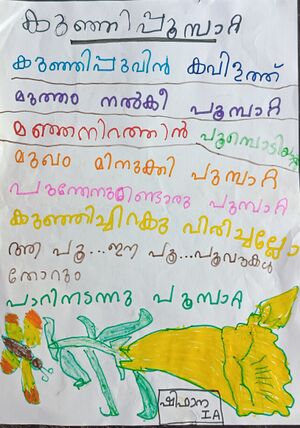 കുഞ്ഞിപ്പൂമ്പാറ്റ
കുഞ്ഞിപ്പുവിൻ കവിളത്ത്
മുത്തം നൽകീ പൂമ്പാറ്റ
മഞ്ഞനിറത്തിൻ പൂമ്പൊടിയാൽ
മുഖം മിനുക്കി പൂമ്പാറ്റ
പൂന്തേനുണ്ടൊരു പൂമ്പാറ്റ
കുഞ്ഞിച്ചിറകു വിരിച്ചല്ലോ
ആ പൂ...ഈ പൂ...പൂവുകൾ
തോറും
പാറിനടന്നു പൂമ്പാറ്റ
ഷിഫാന
I A